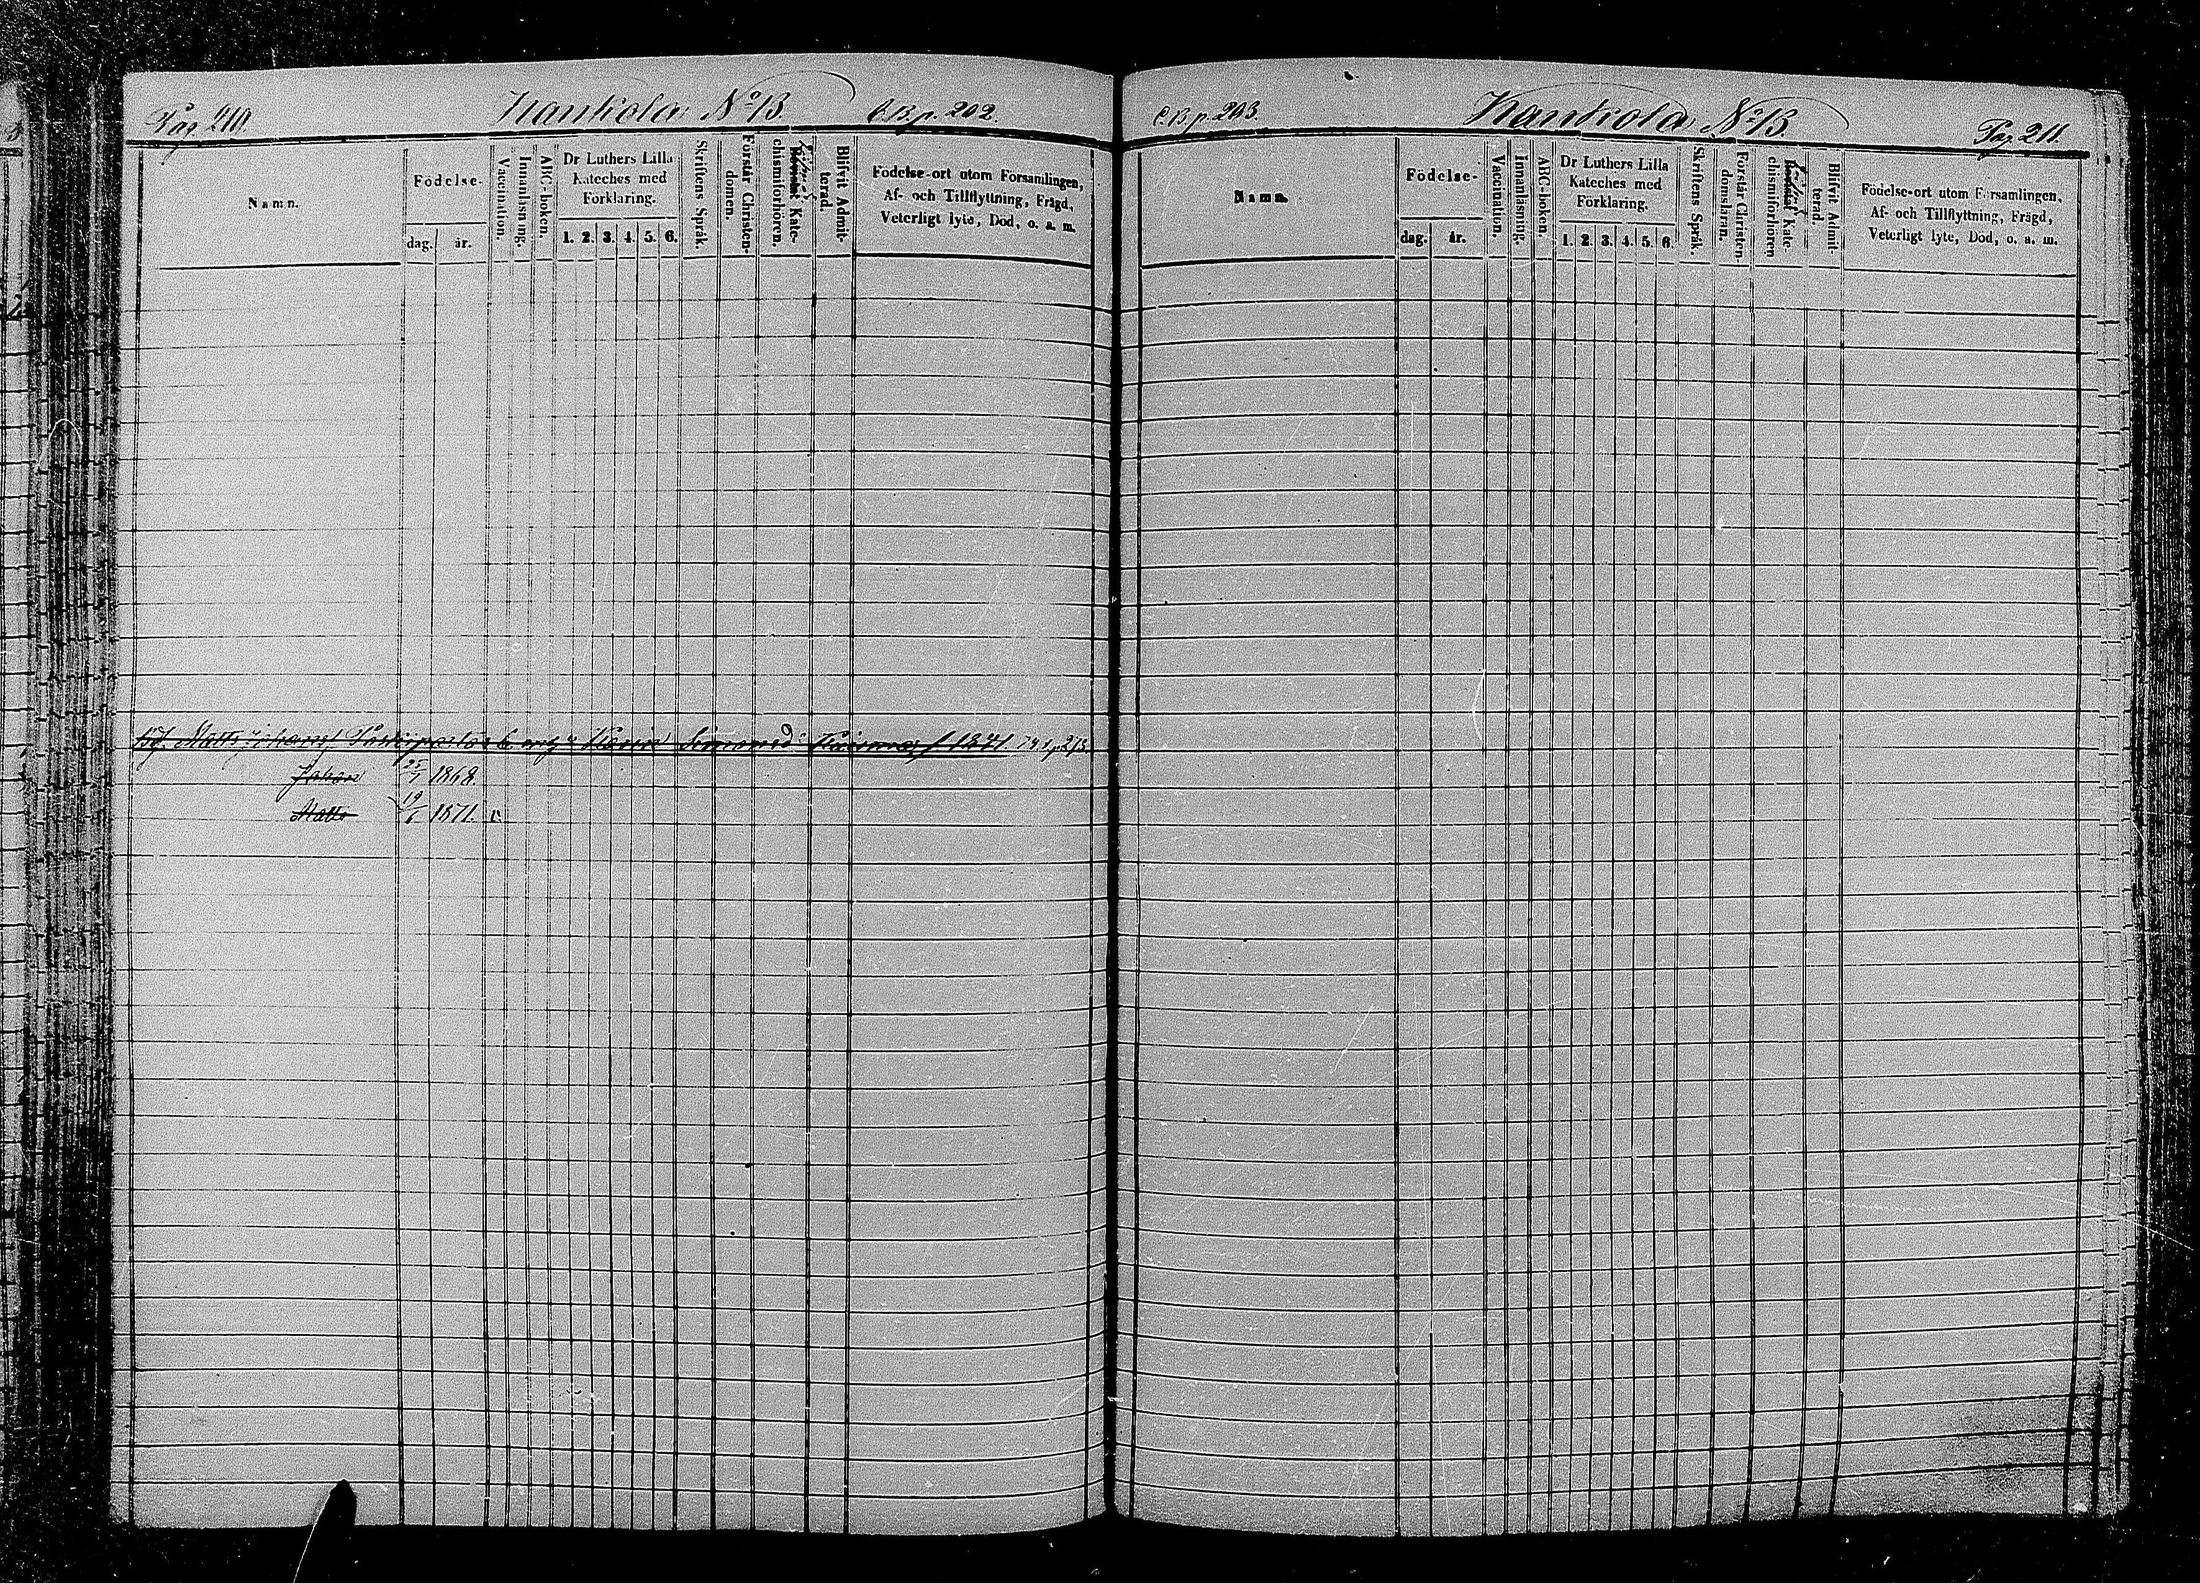 Pag 210.
Kankola No 13.
C.B.p. 202.
Namn.
Födelse-
dag. år.
Vaccination.
Innanläsning.
ABC-boken.
Dr Luthers Lilla
Kateches med
Förklaring.
1. 2. 3. 4. 5. 6.
Skriftens Språk.
Förstår Christen-
domen.
chismiförhören. Kate-
Blifvit Admit-
terad.
Födelse-ort utom Församlingen,
Af- och Tillflyttning, Frägd,
Veterligt lyte, Död, o. a. m.
Matts Karin Simonsd: f 1841 p 213.
Johan 25/7 1868.
Matts 19/6 1871. v
C.B.p. 203.
Kankola No 13
Pag. 211.
Namn.
Födelse-
dag. år.
Vaccination.
Innanläsning.
ABC-boken.
Dr Luthers Lilla
Kateches med
Förklaring.
1. 2. 3. 4. 5. 6.
Skriftens Språk.
Förstår Christen-
domsläran.
chismiförhören Kate-
Blifvit Admit-
terad.
Födelse-ort utom Församlingen,
Af- och Tillflyttning, Frägd,
Veterligt lyte, Död, o. a. m.